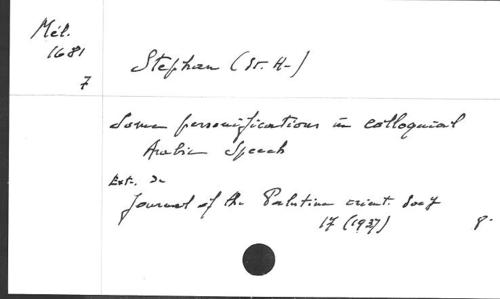 Mél.
1681
7
Stephan (St. H-)
Some personifications in colloquial
Arabic Speech
Ext. de
Journal of the Palestine orient. Socy
17 (1937) 8°